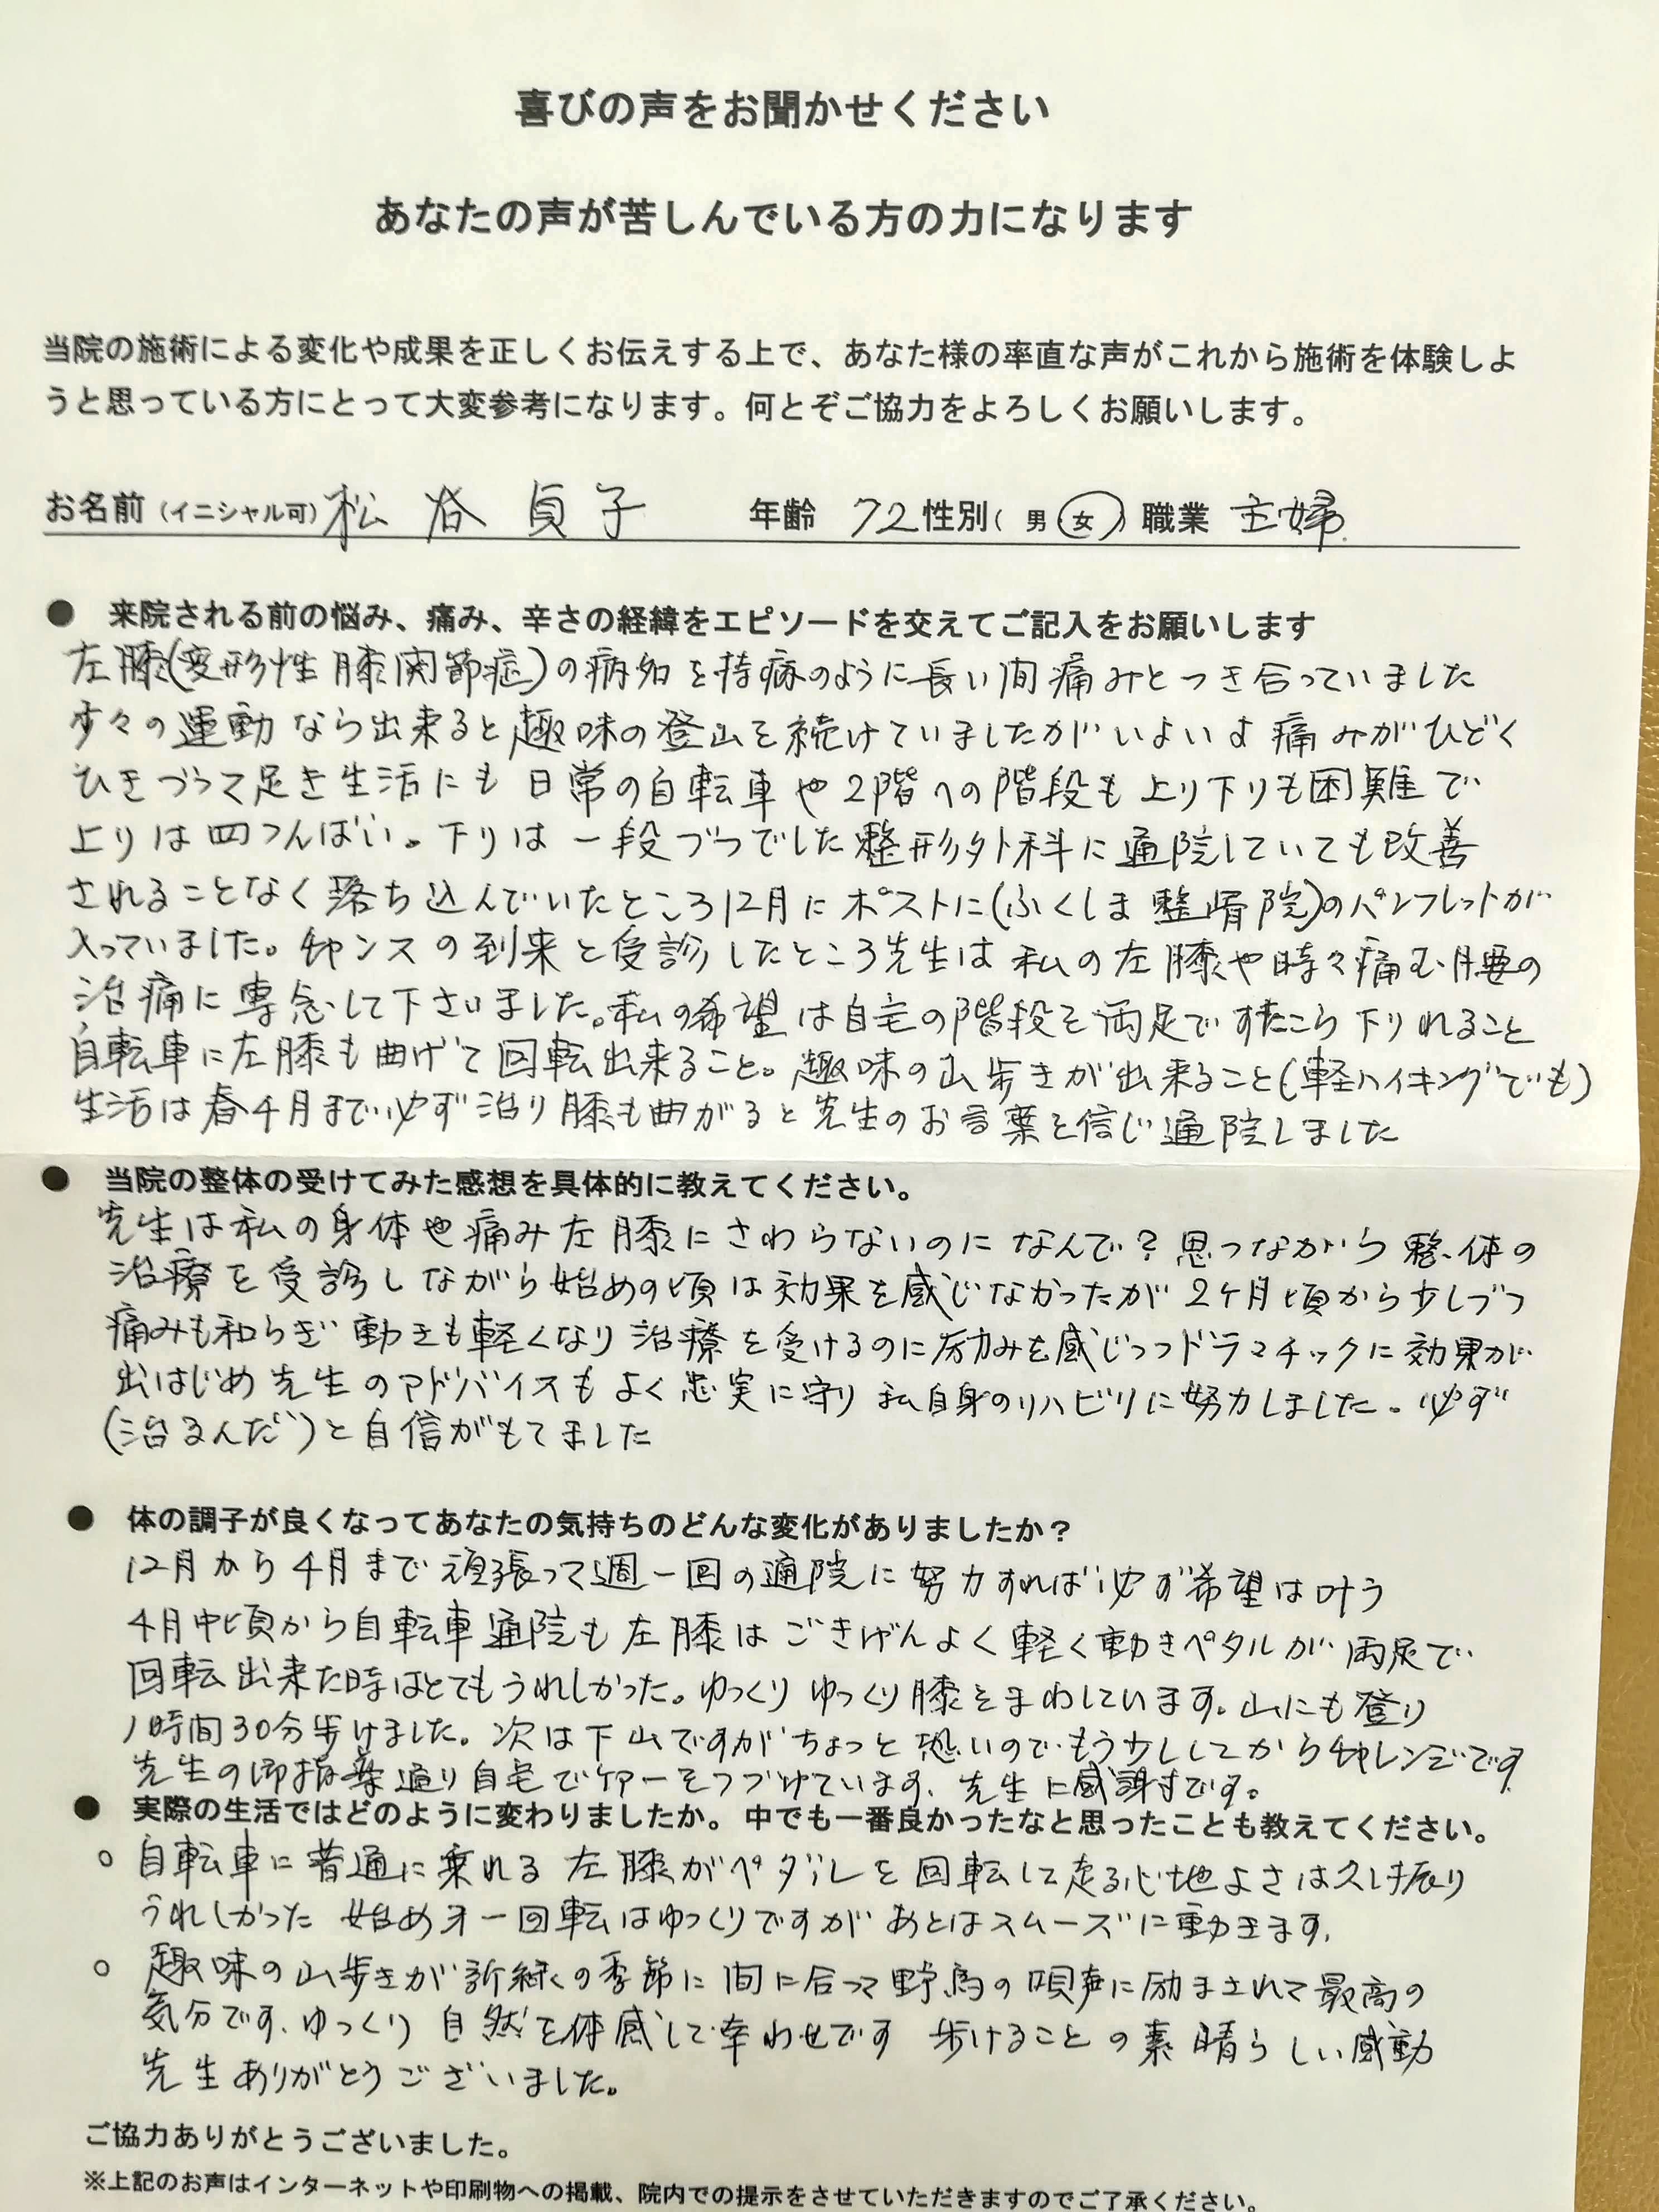 喜びの声をお聞かせください
あなたの声が苦しんでいる方の力になります
当院の施術による変化や成果を正しくお伝えする上で、あなた様の率直な声がこれから施術を体験しよ
うと思っている方にとって大変参考になります。何とぞご協力をよろしくお願いします。
お名前（イニシャル可）松谷貞子 年齢 72 性別（男 女）職業 主婦.
● 来院される前の悩み、痛み、辛さの経緯をエピソードを交えてご記入をお願いします
左膝(変形性膝関節症)の病名を持病のように長い間痛みとつき合っていました
少々の運動なら出来ると趣味の登山を続けていましたがいよいよ痛みがひどく
ひきづって足き生活にも日常の自転車や2階への階段も上り下りも困難で
上りは四つんばい。下りは一段づつでした整形外科に通院していても改善
されることなく落ち込んでいたところ12月にポストに(ふくしま整骨院)のパンフレットが
入っていました。チャンスの到来と受診したところ先生は私の左膝や時々痛む腰の
治痛に専念して下さいました。私の希望は自宅の階段を両足ですたこら下りれること
自転車に左膝も曲げて回転出来ること。趣味の山歩きが出来ること(軽ハイキングでも)
生活は春4月まで必ず治り膝も曲がると先生のお言葉を信じ通院しました
● 当院の整体の受けてみた感想を具体的に教えてください。
先生は私の身体や痛み左膝にさわらないのになんで？思つながら整体の
治療を受診しながら始めの頃は効果を感じなかったが2ヶ月頃から少しづつ
痛みも和らぎ動きも軽くなり治療を受けるのに励みを感じつつドラマチックに効果が
出はじめ先生のアドバイスもよく忠実に守り私自身のリハビリに努力しました。必ず
(治るんだ)と自信がもてました
● 体の調子が良くなってあなたの気持ちのどんな変化がありましたか？
12月から4月まで頑張って週一回の通院に努力すれば必ず希望は叶う
4月中頃から自転車通院も左膝はごきげんよく軽く動きペタルが両足で
回転出来た時はとてもうれしかった。ゆっくりゆっくり膝をまわしています。山にも登り
1時間30分歩けました。次は下山ですがちょっと恐いのでもう少ししてからチャレンジです
先生の御指導通り自宅でケアーをつづけています、先生に感謝です。
● 実際の生活ではどのように変わりましたか。中でも一番良かったなと思ったことも教えてください。
○ 自転車に普通に乗れる 左膝がペダルを回転して走る心地よさは久し振り
うれしかった 始め才一回転はゆっくりですがあとはスムーズに動きます,
○ 趣味の山歩きが新緑の季節に間に合って野鳥の唄声に励まされて最高の
気分です、ゆっくり自然を体感して幸わせです 歩けることの素晴らしい感動
先生ありがとうございました。
ご協力ありがとうございました。
※上記のお声はインターネットや印刷物への掲載、院内での提示をさせていただきますのでご了承ください。